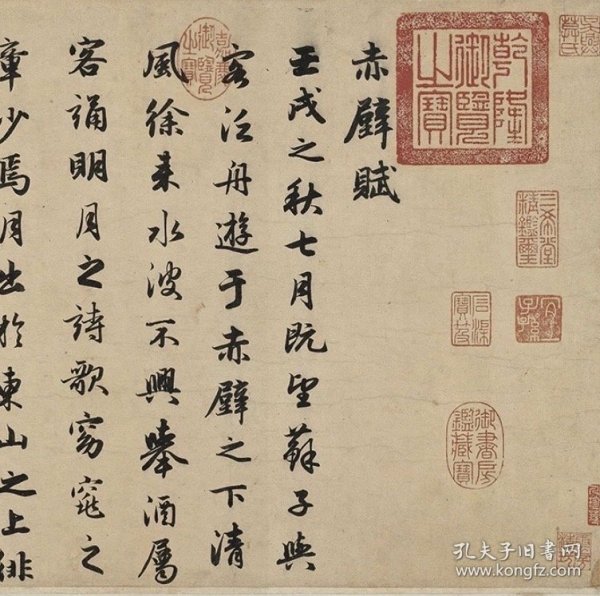 乾隆
御覽
之寶
三希堂
精鑑璽
宜子孫
石渠
寶笈
御書房
鑑藏寶
赤壁賦
壬戌之秋七月既望蘇子與
客泛舟遊于赤壁之下清
嘉慶
御覽
之寶
風徐来水波不興舉酒屬
客誦明月之詩歌窈窕之
章少焉月出於東山之上徘
孔夫子旧书网
www.kongfz.com